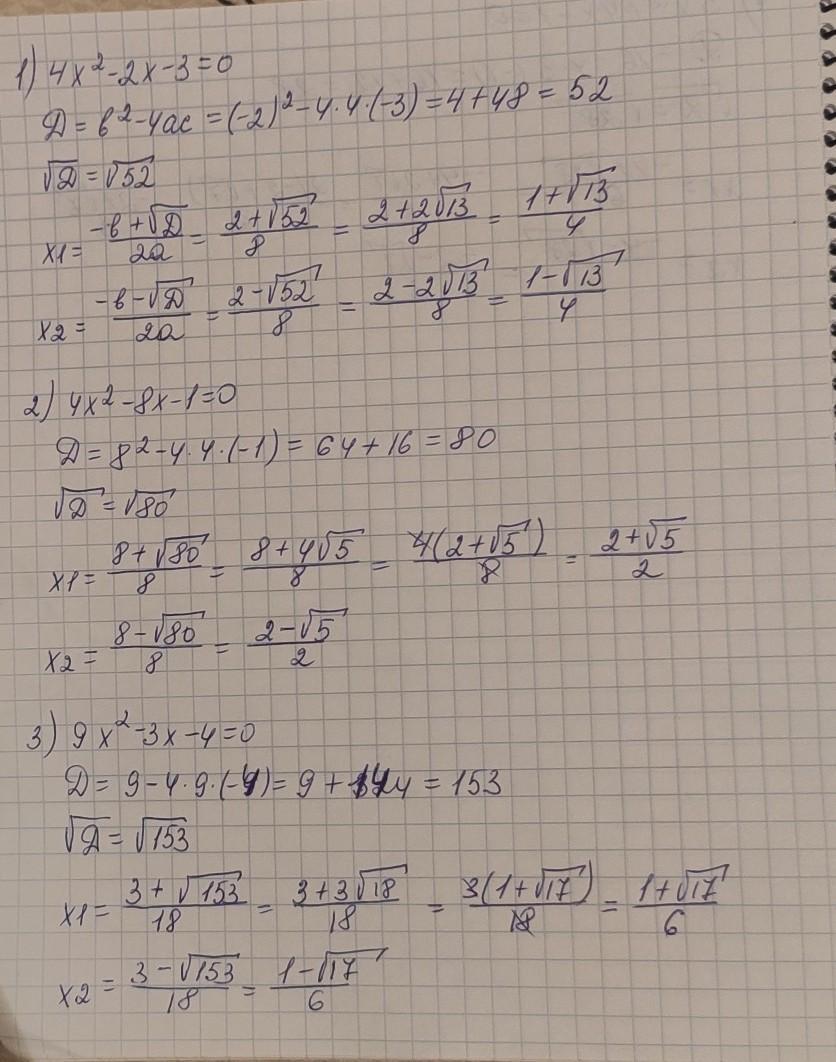 1) 4x²-2x-3=0
Д = в²-4ac = (-2)²-4·4·(-3) = 4+48 = 52
√Д = √52
x1 = (-в+√Д)/2a = (2+√52)/8 = (2+2√13)/8 = (1+√13)/4
x2 = (-в-√Д)/2a = (2-√52)/8 = (2-2√13)/8 = (1-√13)/4
2) 4x²-8x-1=0
Д = 8²-4·4·(-1) = 64+16 = 80
√Д = √80
x1 = (8+√80)/8 = (8+4√5)/8 = 4(2+√5)/8 = (2+√5)/2
x2 = (8-√80)/8 = (2-√5)/2
3) 9x²-3x-4=0
Д = 9-4·9·(-4) = 9+144 = 153
√Д = √153
x1 = (3+√153)/18 = (3+3√18)/18 = 3(1+√17)/18 = (1+√17)/6
x2 = (3-√153)/18 = (1-√17)/6